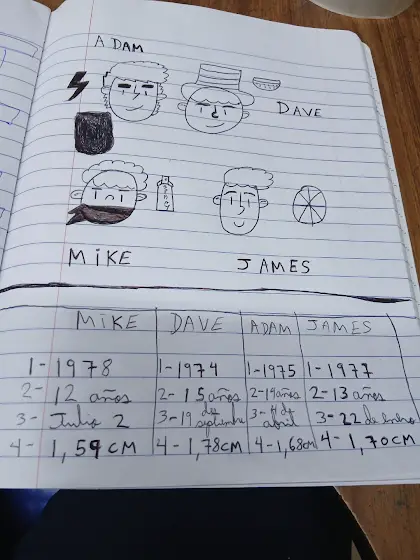 ADAM
DAVE
MiKE
JAMES
MiKE DAVE ADAM JAMES
1-1978 1-1974 1-1975 1-1977
2- 12 años 2- 15 años 2-14años 2- 13 años
3- Julio 2 3-19 de septiembre 3- 4 de abril 3- 22 de
4- 1,59CM 4- 1,78CM 4-1,68CM 4- 1,70CM